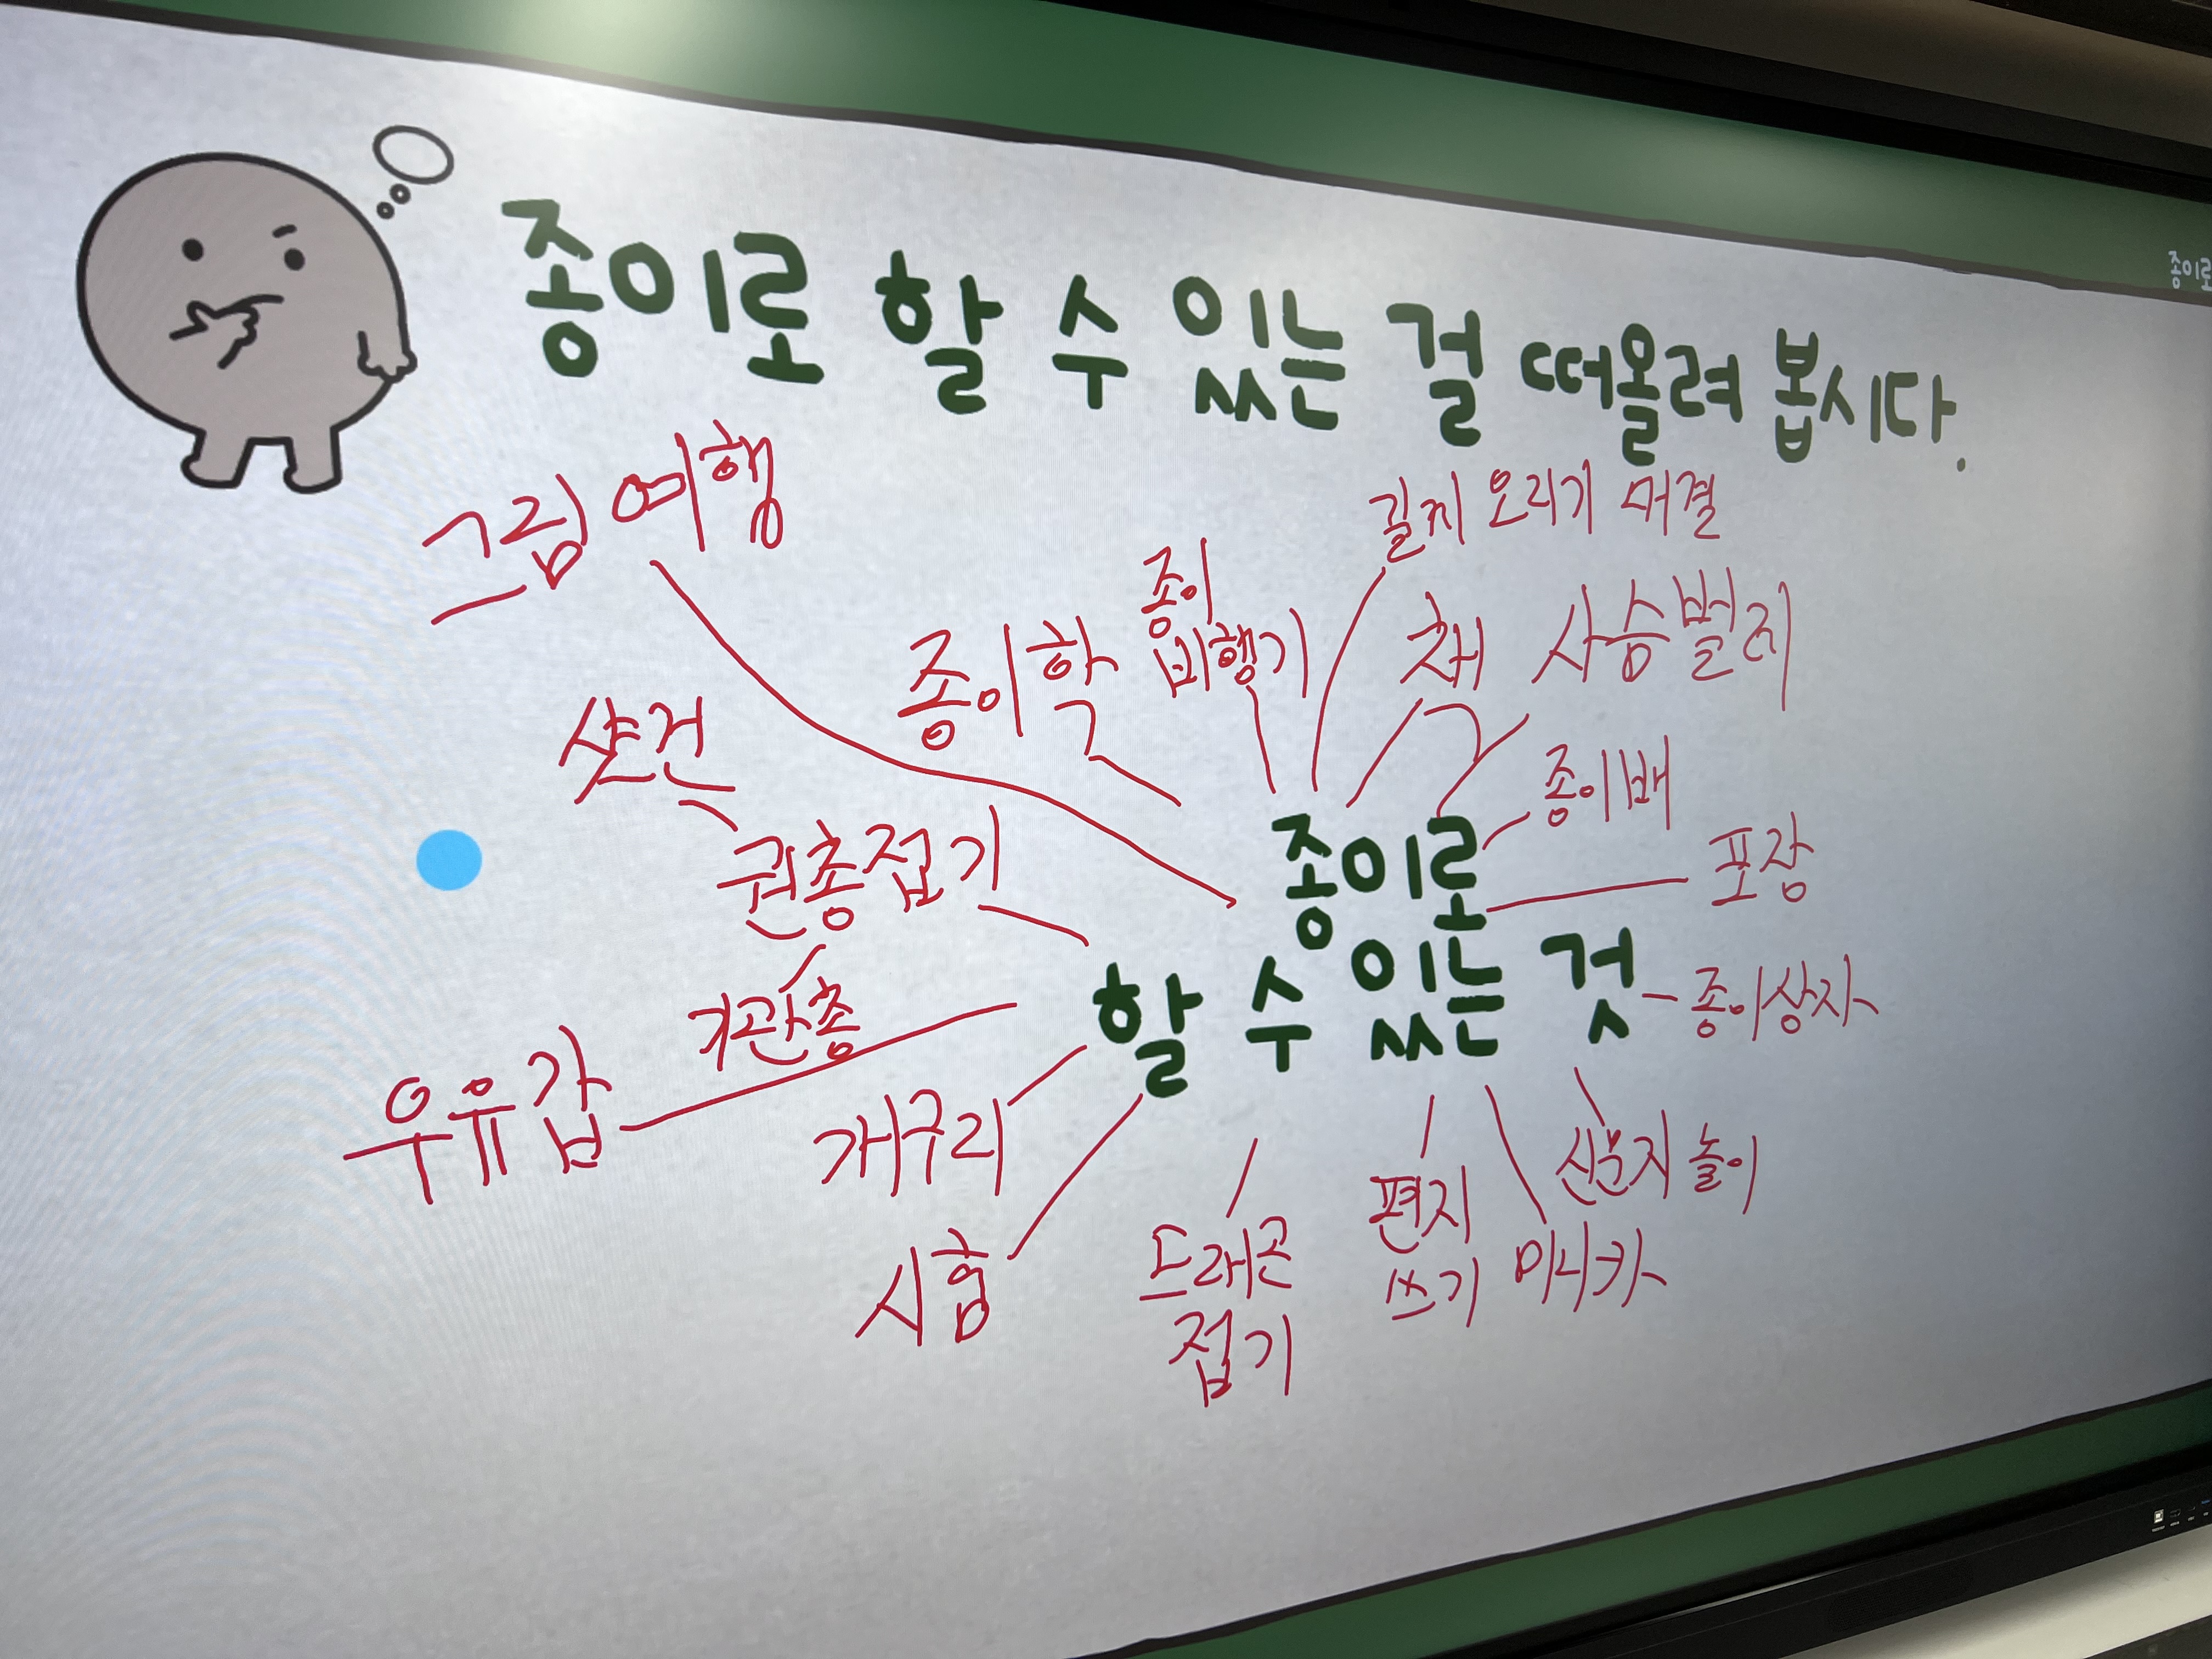 종이로 할 수 있는 걸 떠올려 봅시다.
종이로
그림 여행
길게 오리기 대결
종이
비행기
종이학
책
사슴벌레
샷건
종이배
권총접기
포장
종이로
할 수 있는 것
종이상자
기관총
우유갑
개구리
신문지 놀이
편지
쓰기
미니카
시험
드래곤
접기